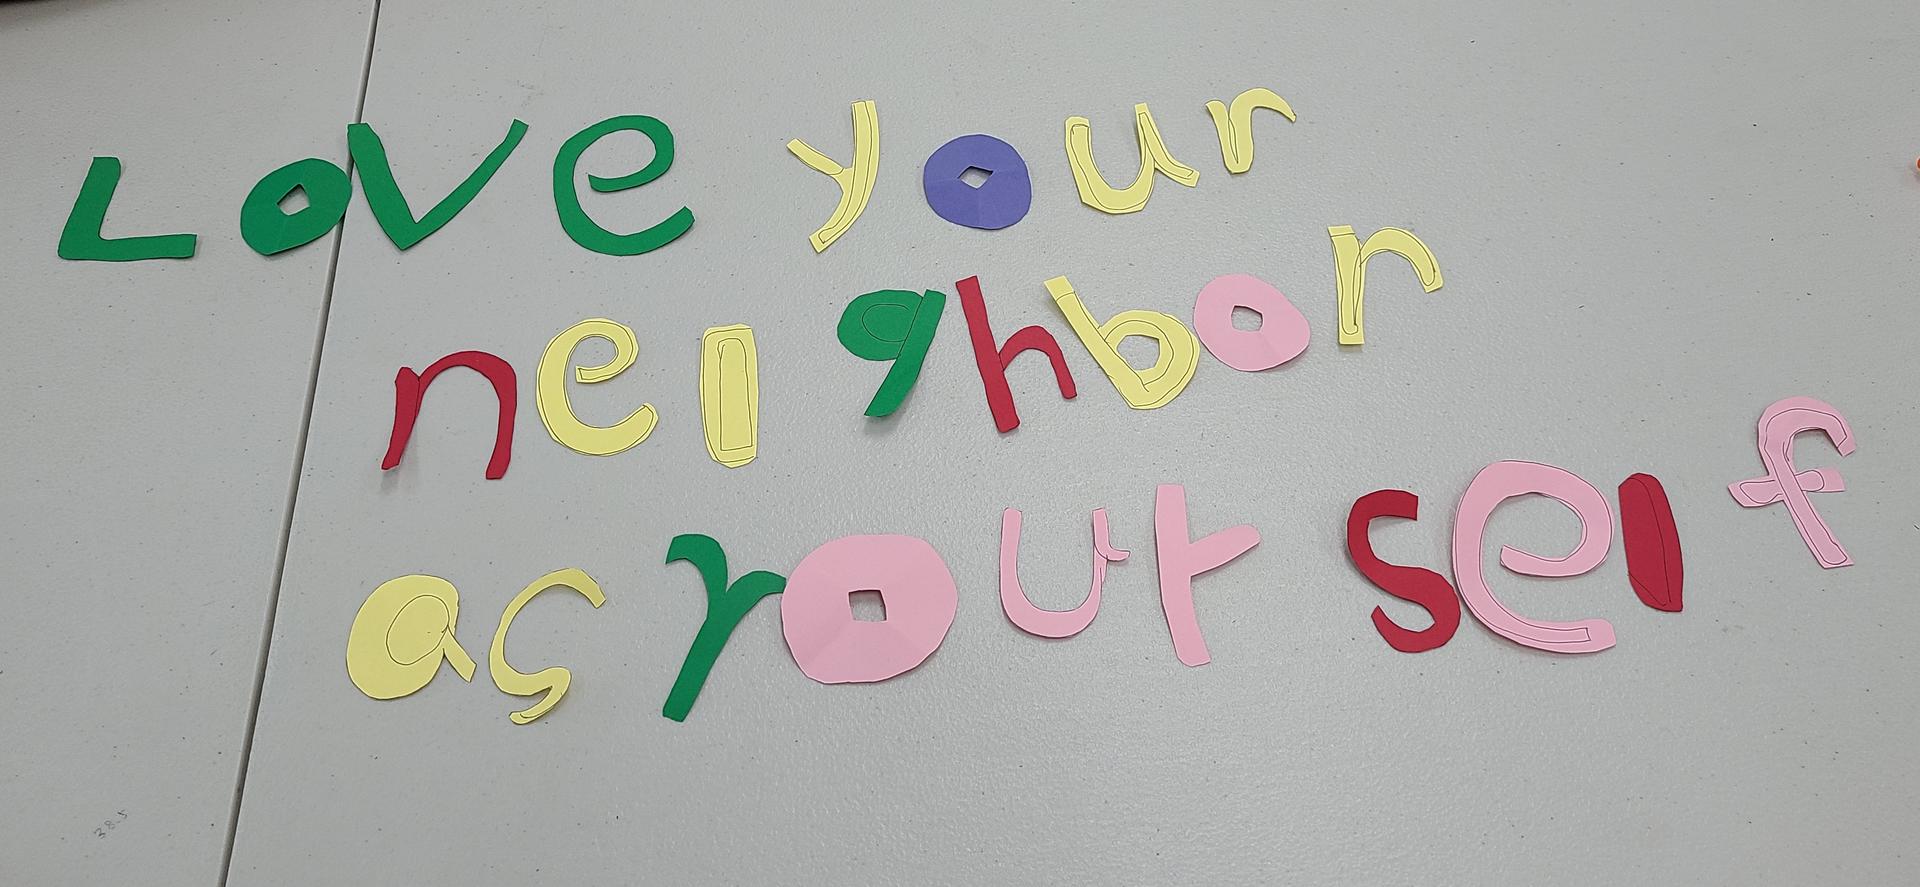 Love your
neighbor
as your self
38.5